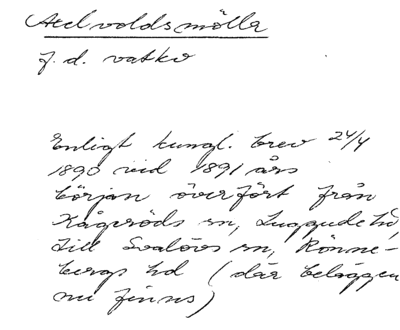 Axelvoldsmölla
f. d. vatkv
Enligt kungl. brev 24/4
1890 vid 1891 års
början överfört från
Kågeröds sn, Luggude hd,
till Svalövs sn, Rönne-
bergs hd (där beläggen
nu finns)